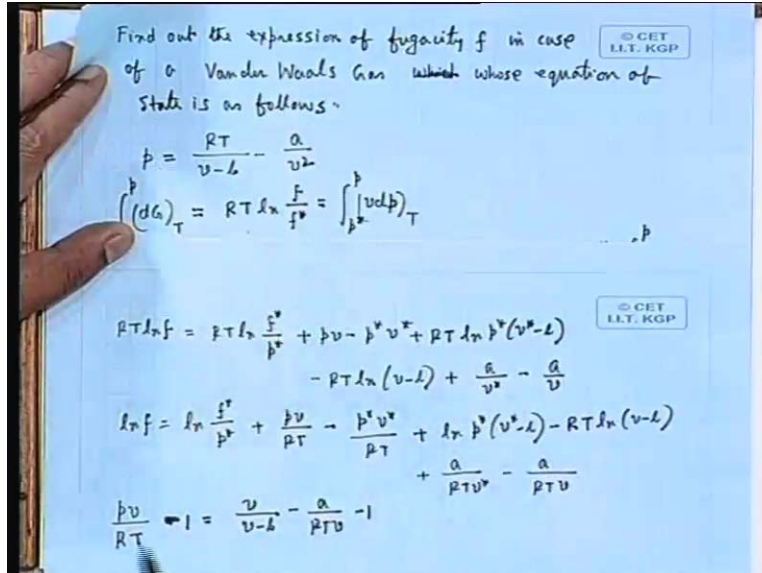 Find out the expression of fugacity f in case
© CET
I.I.T. KGP
of a Vander Waals Gas which whose equation of
State is as follows.
p = RT/(v-b) - a/v²
∫^p (dG)_T = RT ln f/f* = ∫_{p*}^p (vdp)_T
p
© CET
I.I.T. KGP
RT ln f = RT ln f*/p* + pv - p*v* + RT ln p*(v*-b)
- RT ln (v-b) + a/v* - a/v
ln f = ln f*/p* + pv/RT - p*v*/RT + ln p*(v*-b) - RT ln (v-b)
+ a/RTv* - a/RTv
pv/RT - 1 = v/(v-b) - a/RTv - 1